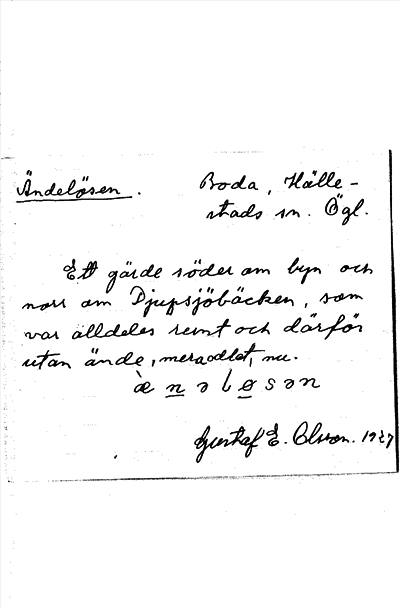 Ändelösen. Boda, Hälle-
stads sn. Ögl.
Ett gärde söder om byn och
norr om Djupsjöbäcken, som
var alldeles remt och därför
utan ände, meraodlat, nu.
æ̀ n ə l ø s ə n
Gustaf E. Olsson. 1927